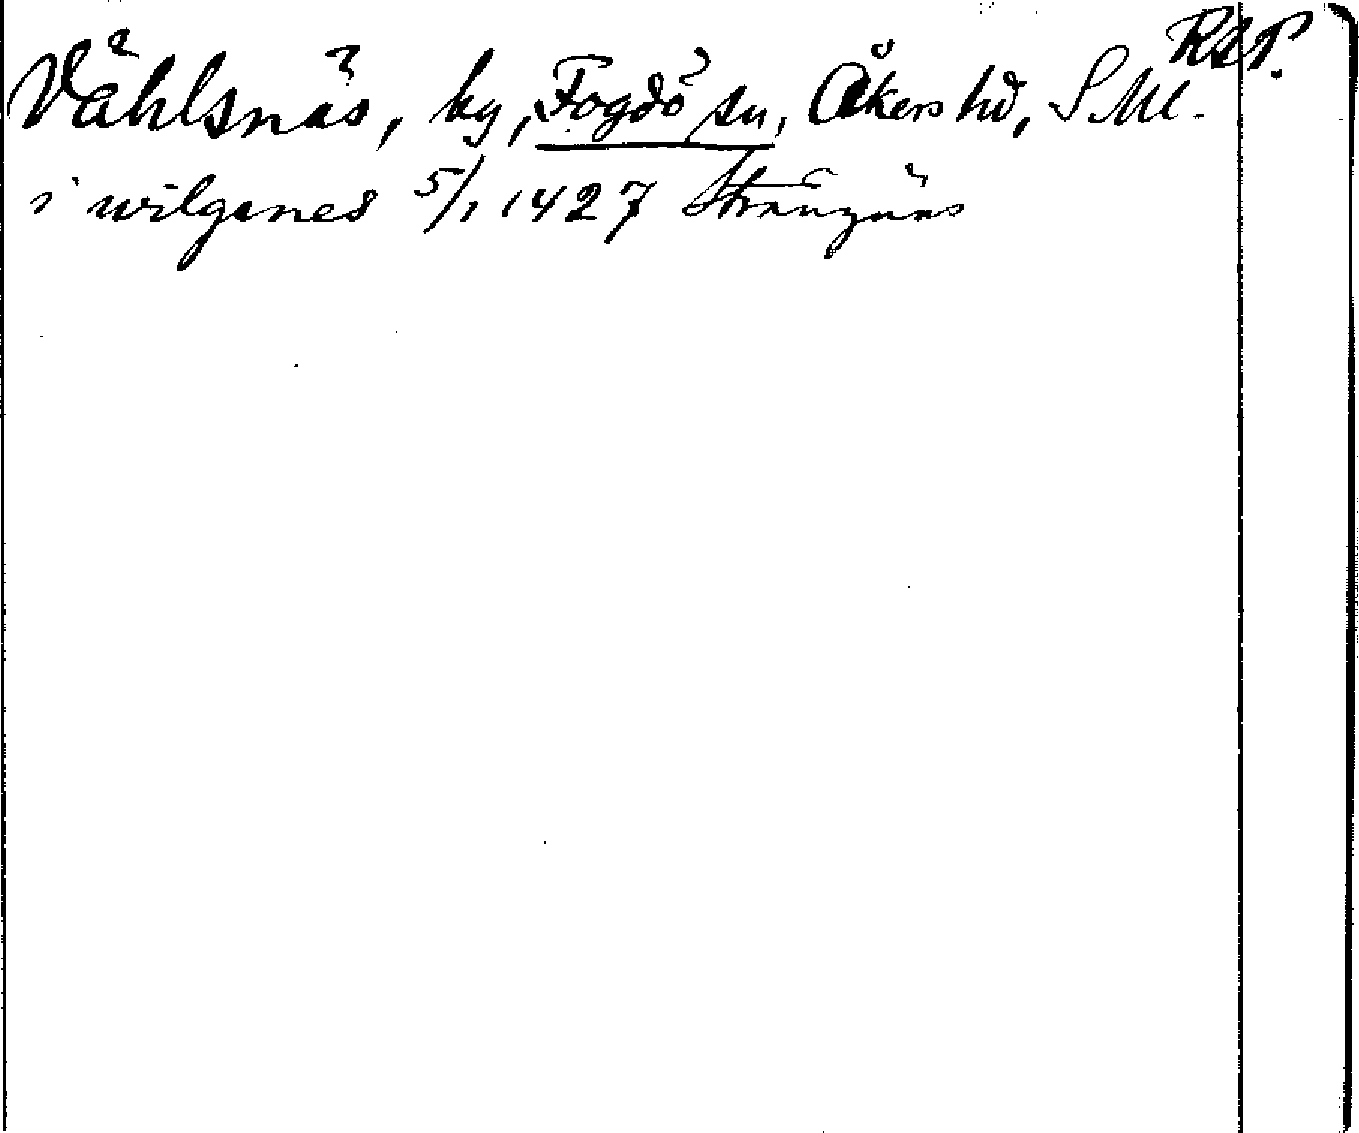 RAP.
Vählsnäs, by, Fogdö sn, Åkers hd, SML.
i wilganes 5/1 1427 Strängnäs